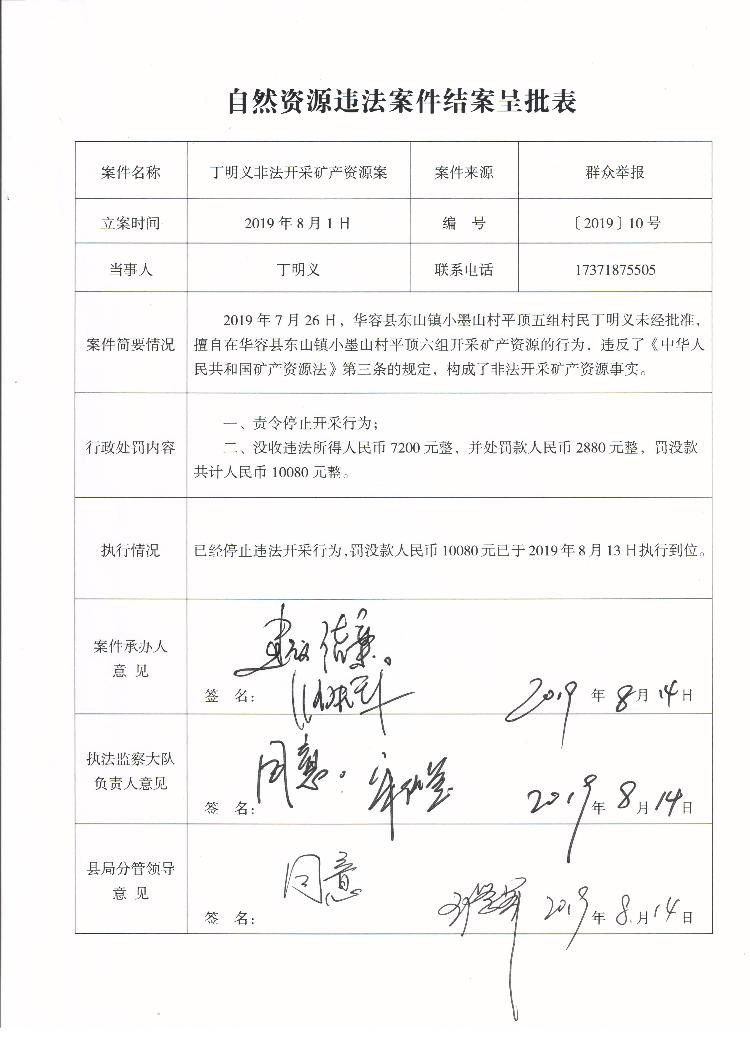 自然资源违法案件结案呈批表
案件名称 丁明义非法开采矿产资源案 案件来源 群众举报
立案时间 2019 年 8 月 1 日 编 号 〔2019〕10 号
当事人 丁明义 联系电话 17371875505
2019 年 7 月 26 日，华容县东山镇小墨山村平顶五组村民丁明义未经批准，
案件简要情况 擅自在华容县东山镇小墨山村平顶六组开采矿产资源的行为，违反了《中华人
民共和国矿产资源法》第三条的规定，构成了非法开采矿产资源事实。
一、责令停止开采行为；
行政处罚内容 二、没收违法所得人民币 7200 元整，并处罚款人民币 2880 元整，罚没款
共计人民币 10080 元整。
执行情况 已经停止违法开采行为,罚没款人民币 10080 元已于 2019 年 8 月 13 日执行到位。
案件承办人 建议结案。
意 见
签 名： 2019 年 8 月 14 日
执法监察大队 同意。
负责人意见
签 名： 2019 年 8 月 14 日
县局分管领导 同意
意 见
签 名： 2019 年 8 月 14 日